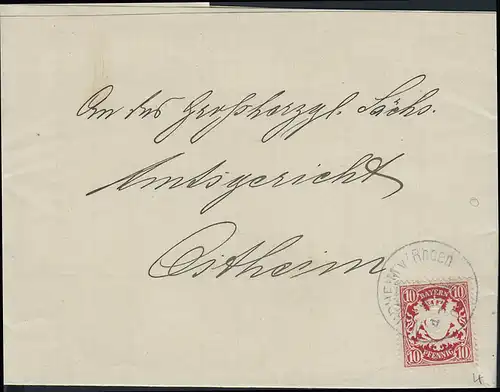 An das Großherzgl. Sächs.
Amtsgericht
Ostheim
v/Rhoen
10 BAYERN 10
10 PFENNIG 10
4